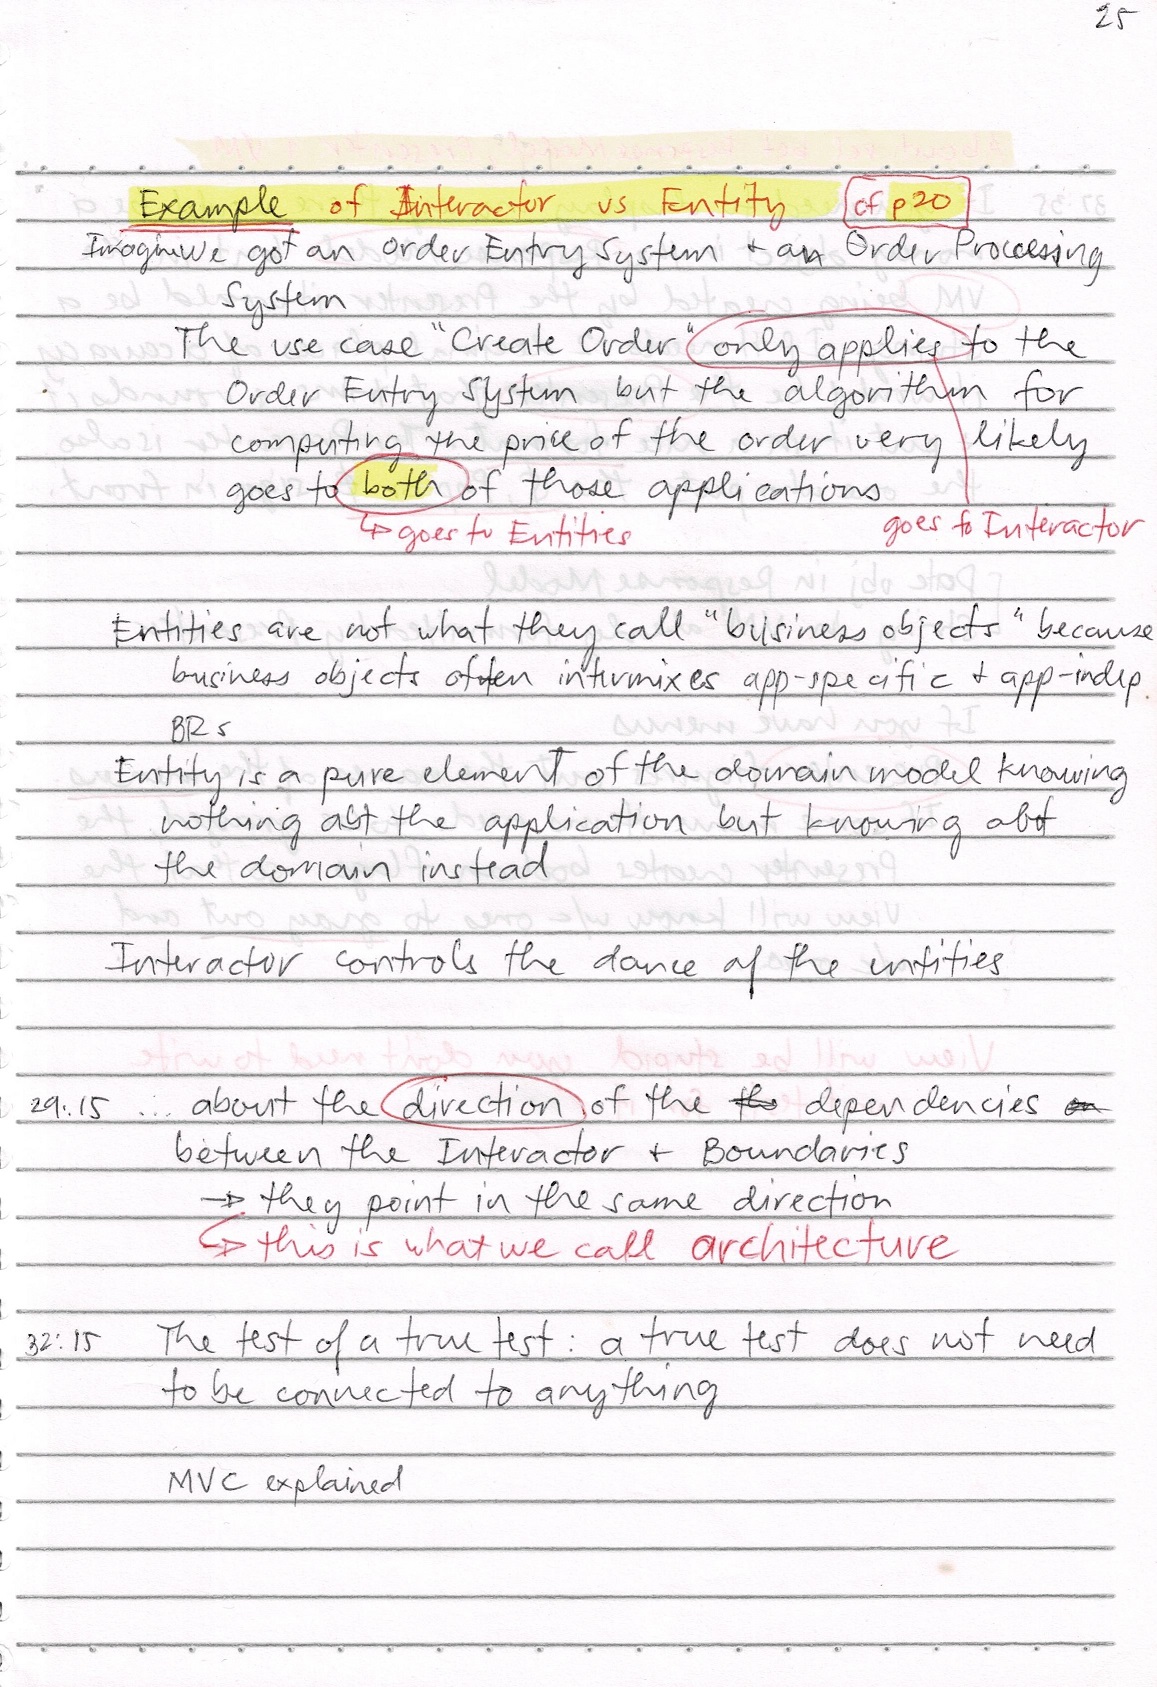 25
Example of Interactor vs Entity cf p20
Imagine we got an Order Entry System + an Order Processing
System
The use case "Create Order" only applies to the
Order Entry System but the algorithm for
computing the price of the order very likely
goes to both of those applications
↳ goes to Entities goes to Interactor
Entities are not what they call "business objects" because
business objects often intermixes app-specific + app-indep
BRs
Entity is a pure element of the domain model knowing
nothing abt the application but knowing abt
the domain instead
Interactor controls the dance of the entities
29:15 ... about the direction of the the dependencies
between the Interactor + Boundaries
→ they point in the same direction
↳ this is what we call architecture
32:15 The test of a true test: a true test does not need
to be connected to anything
MVC explained